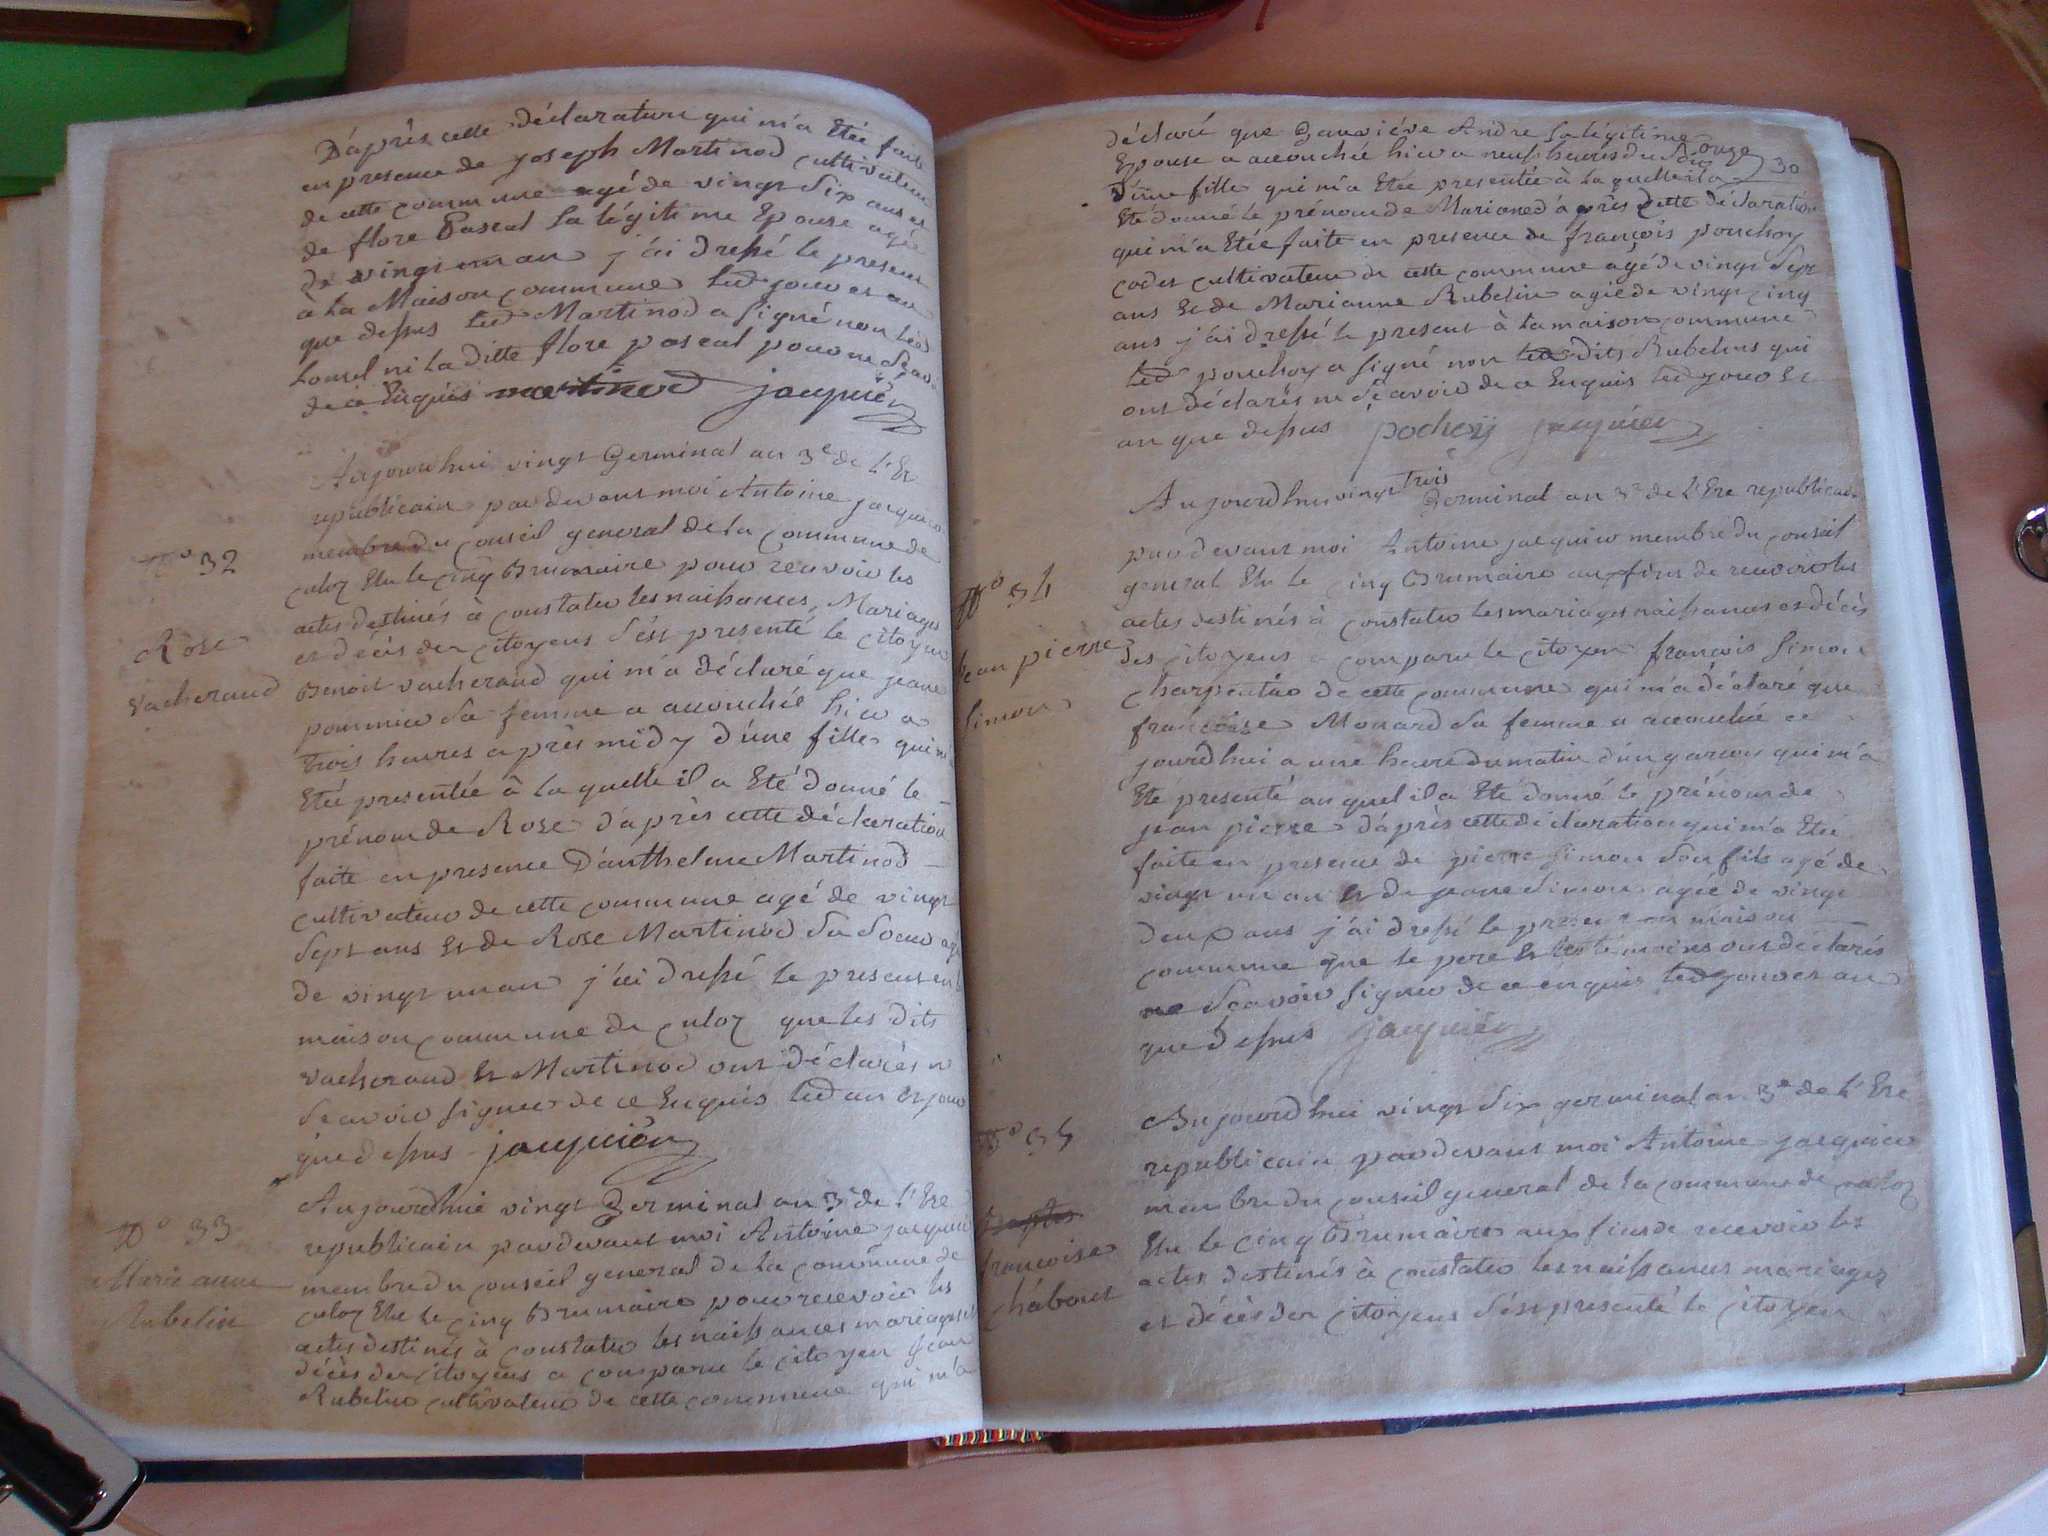 D'après cette déclaration qui m'a Etée faite
en presence de joseph Martinod cultivateur
de cette commune agé de vingt Six ans et
de flore Pascal sa légitime Epouse agée
de vingt un an j'ai dressé le present
à la Maison commune led jour et an
que dessus led Martinod a signé non led
ni la ditte flore pascal pour ne Seavoir
de ce Enquis martinod jacquiér
N° 32
Rose
vacherand
Aujourdhui vingt Germinal an 3e de l'Er
republicain par devant moi Antoine jacquier
membre du conseil general de la commune de
culoz Elu le cinq Brumaire pour recevoir les
actes destinés à constater les naissances, Mariages
et décès des citoyens s'est presenté le citoyen
Benoit vacherand qui m'a déclaré que jeane
pommier Sa femme a accouchée hier a
trois heures après midy d'une fille qui m'a
Eté presentée à la quelle il a Eté donné le
prénom de Rose d'après cette déclaration
faite en presence D'anthelme Martinod
cultivateur de cette commune agé de vingt
Sept ans Et de Rose Martinod Sa Soeur agé
de vingt un an j'ai dressé le present en la
maison commune de culoz que les dits
vacherand Et Martinod ont déclarés ne
Seavoir signer de ce Enquis led an et jour
que dessus jacquiér
N° 33
Marie anne
Rubelin
Aujourdhui vingt Germinal an 3e de l'Ere
republicain par devant moi Antoine jacquier
membre du conseil general de la commune de
culoz Elu le cinq Brumaire pour recevoir les
actes destinés à constater les naissances mariages et
décès des citoyens a comparu le citoyen jean
Rubelin cultivateur de cette commune qui m'a
déclaré que Genviéve Andre Sa légitime
Epouse a accouchée hier a neuf heures du Soir onze
30
d'une fille qui m'a Etée presentée à la quelle il a
Eté donné le prénom de Marianne d'après cette déclaration
qui m'a Etée faite en presence de françois pouchoy
cadet cultivateur de cette commune agé de vingt Sept
ans Et de Marianne Rubelin agée de vingt cinq
ans j'ai dressé le present à la maison commune
led pouchoy a signé non les dits Rubelins qui
ont déclarés ne Seavoir de ce Enquis led jour Et
an que dessus pochoÿ jacquiér
N° 34
jean pierre
Simon
Aujourdhui vingt trois Germinal an 3e de l'Ere republicain
par devant moi Antoine jacquier membre du conseil
general Elu le cinq Brumaire aux fins de recevoir les
actes destinés à constater les mariages naissances et décès
des citoyens a comparu le citoyen françois Simon
charpentier de cette commune qui m'a déclaré que
francoise Monard Sa femme a accouché ce
jourd'hui a une heure du matin d'un garcon qui m'a
Eté presenté au quel il a Eté donné le prénom de
jean pierre d'après cette déclaration qui m'a Etée
faite en presence de pierre Simon Son fils agé de
vingt un an Et de jeane Simon agée de vingt
deux ans j'ai dressé le present en maison
commune que le pere Et les temoins ont déclarés
ne Seavoir signer de ce enquis led jour et an
que dessus jacquiér
N° 35
francoise
chabout
Aujourdhui vingt Six germinal an 3e de l'Ere
republicain par devant moi Antoine jacquier
membre du conseil general de la commune de culoz
Elu le cinq Brumaire aux fins de recevoir les
actes destinés à constater les naissances mariages
et décès des citoyens s'est presenté le citoyen